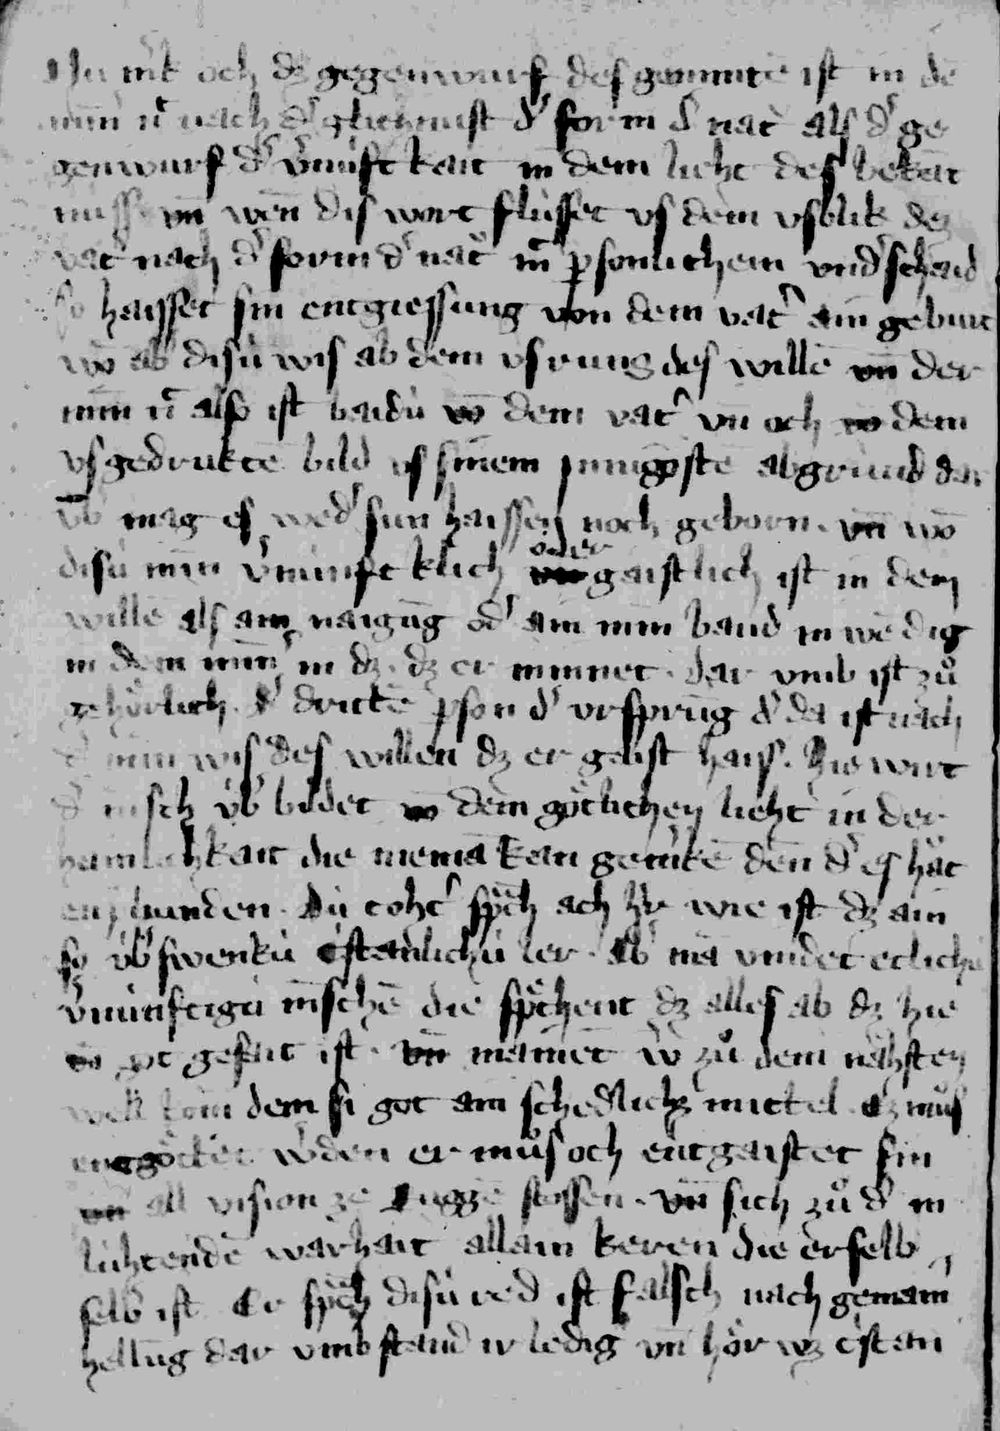 Nu mk och dz gegenwurf des gemuͤte ist in de
min nit nach dˀ glichnust dˀ form dˀ natˀ als dˀ ge
genwurf dˀ vˀnunft kait in dem lieht des bekāt
nuss vn̄ wen̄ dis wort flússet vs dem vsblik dez
vatˀ nach dˀ form dˀ natˀ mit psonlichem vndˀschaid
so haisset sin entgiessung von dem vatˀ ain geburt
wō ab disú wis ab dem vsrung des willē vn̄ der
min nit also ist baidú vō dem vatˀ vn̄ och vō dem
vsgedruktē bild vs sinem innigostē abgrund dar
vb mag es wedˀ sun haissen noch geborn. vn̄ wō
disú min vˀnunft klich oder gaistlich ist in dem
willē als ain naigūg odˀ ain min band in wēdig
in dem minˀ in dz. dz er minnet. dar vmb ist zuͦ
gehoͤrlich dˀ drittē pson dˀ vrsprūg dˀ da ist nach
dˀ min wis des willen dz er gaist haiss. Hie wirt
dˀ m̄sch v́bˀ bildet vō dem goͤtlichen lieht in der
haimlichkait die niemā kan gemˀkē den̄ dˀ es hat
enphunden. Dú tohtˀ sp̄ch ach hr̄ wie ist dz ain
so v́bˀswenkú cˀstenlichú ler. Ab mā vindet etlichú
vˀnúnftigú m̄schē die sp̄chent dz alles ab dz hie
vō gt gesait ist. vn̄ mainet wˀ zuͦ dem nehsten
well kom dem si got ain schedlichz mittel. Er muͦs
entgoͤttet wˀden er muͦs och entgaistet sin
vn̄ all vision ze ruggē stossen. vn̄ sich zuͦ dˀ in
lúhtendē warhait allain keren die er selb
selb ist. Er sp̄ch disú red ist falsch nach gemain
hellūg dar vmb stand ir ledig vn̄ hoͤr wz cˀstan